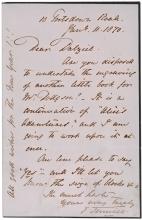 Portsdown Road.
Jan. 11. 1870.
Dear Dalziel.
Are you disposed
to undertake the engraving
of another little book for
Mr. Dodgson? It is a
continuation of "Alice's
Adventures" and I am
going to work upon it at
once.
One line please to say
"Yes" and I'll let you
know the size of blocks &c.
Yours very truly
J Tenniel
All good wishes for the New Year!